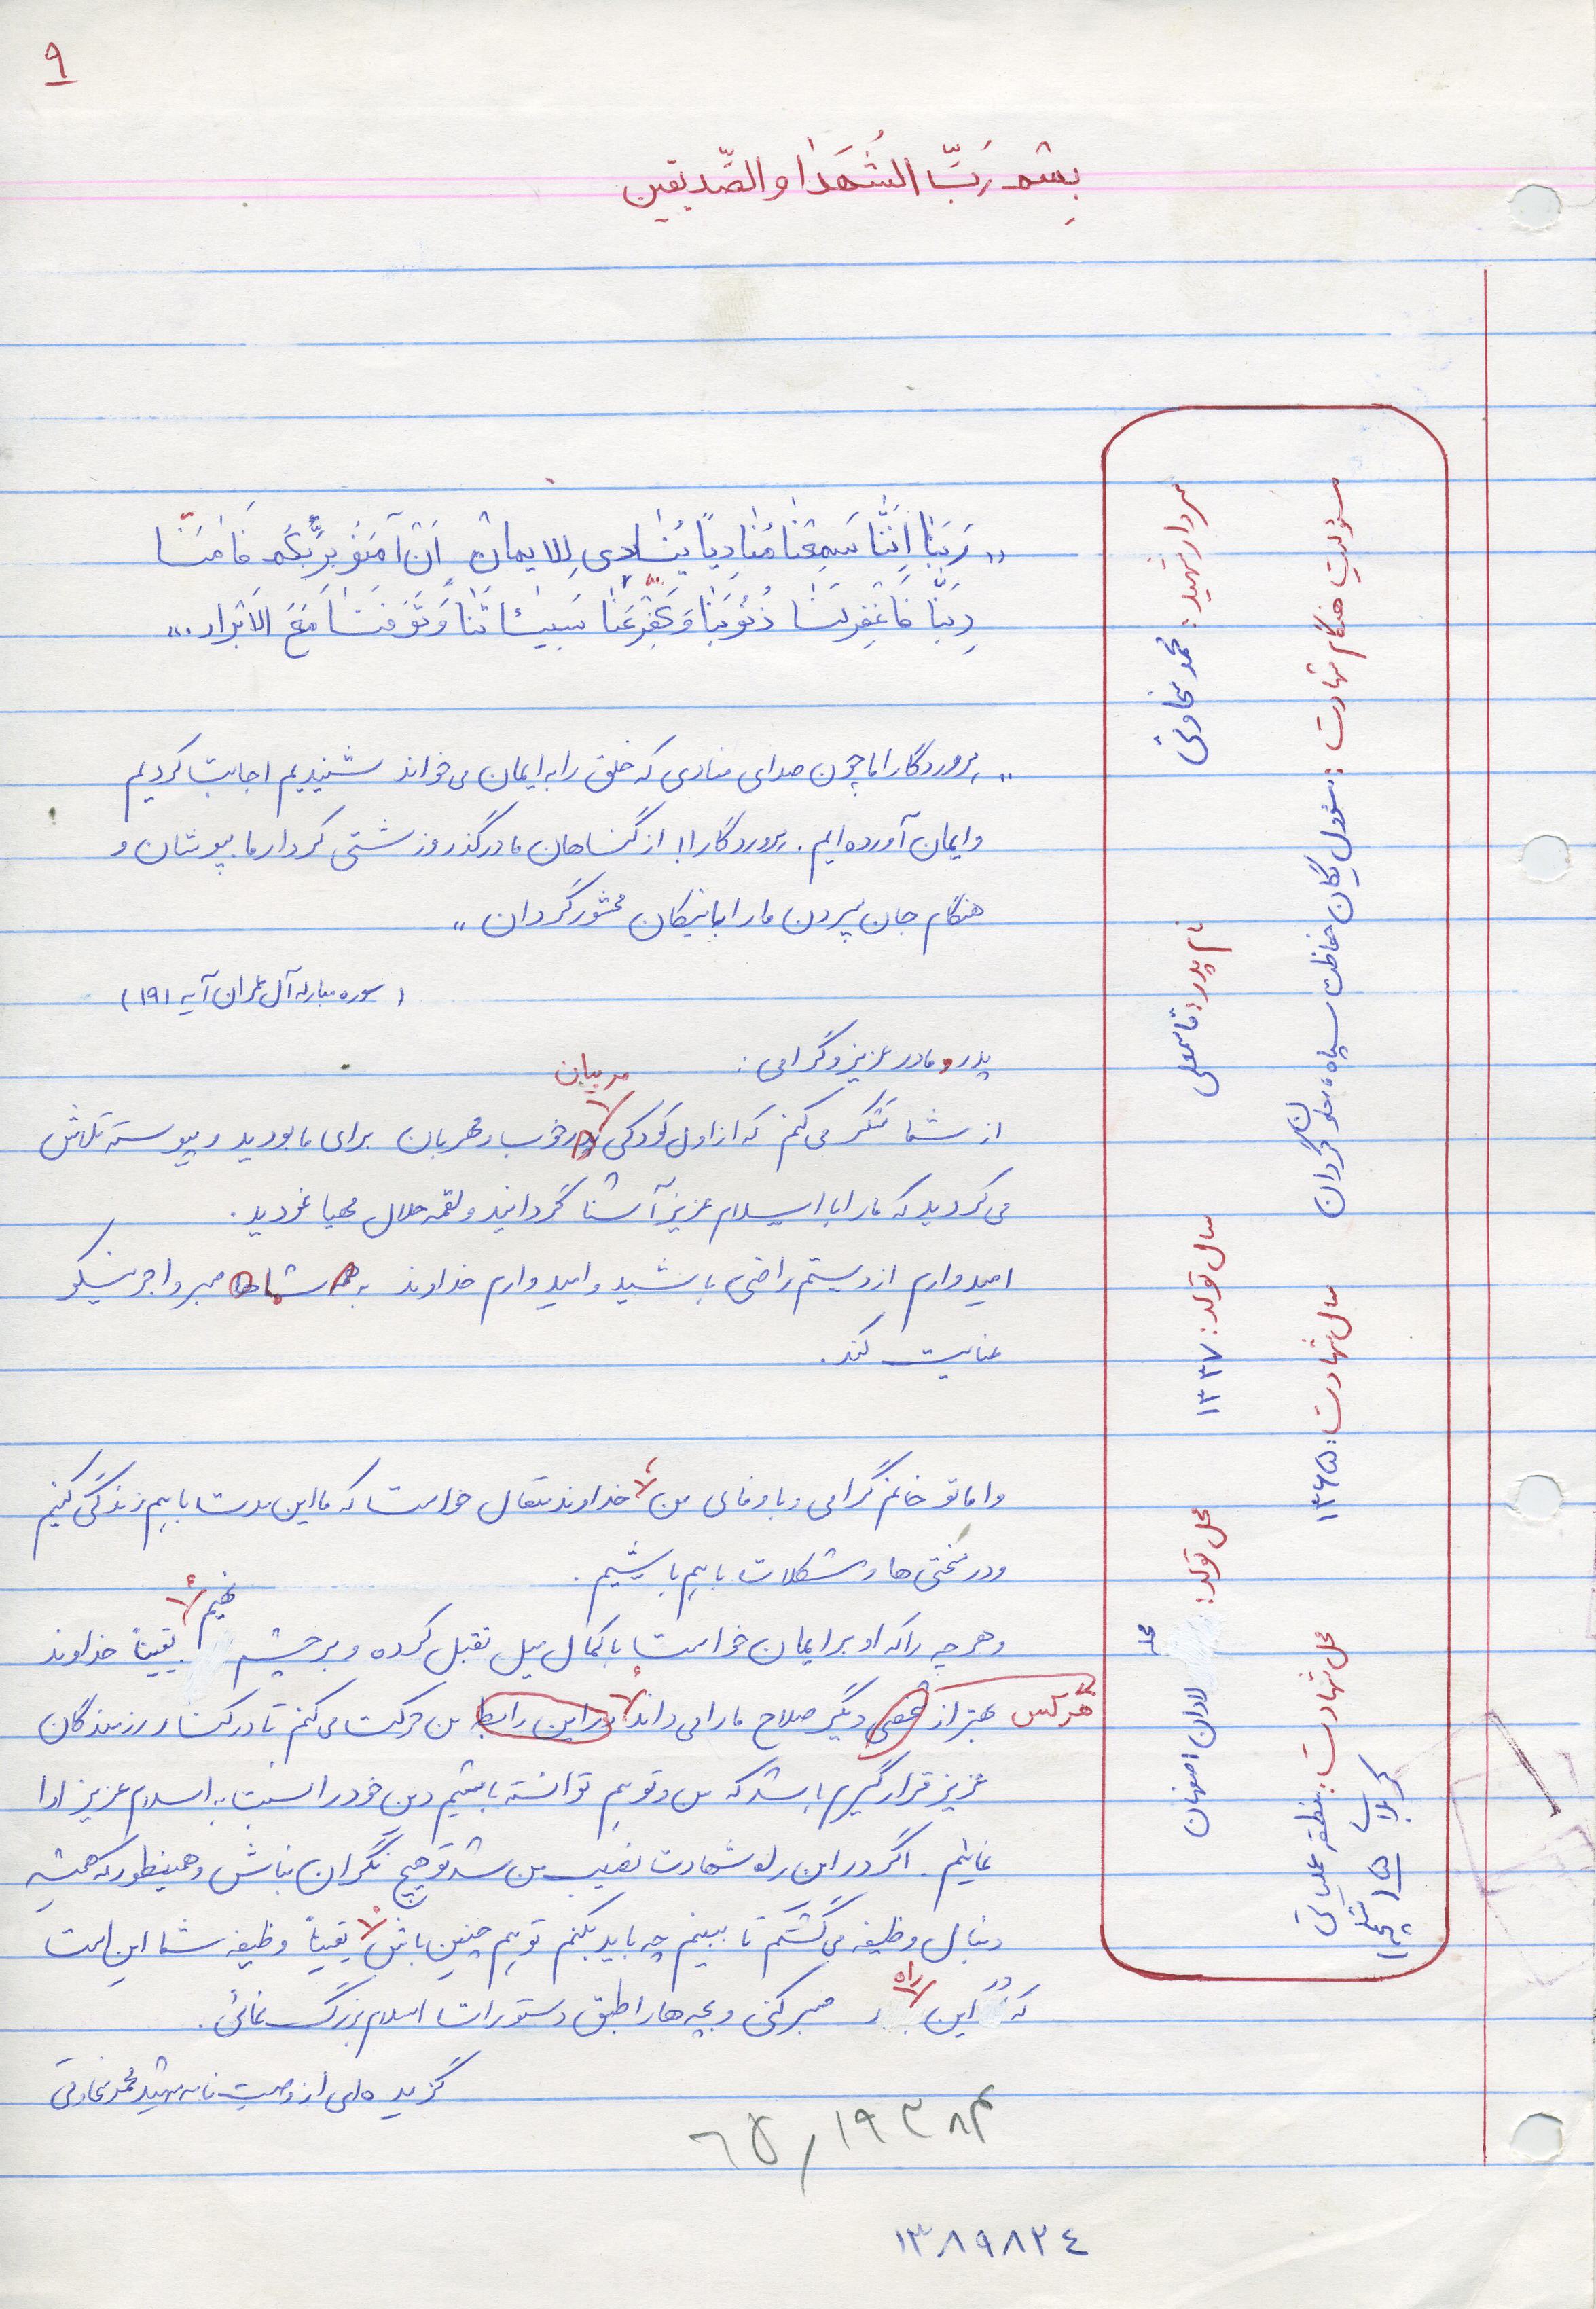 ۹
بِسْمِ رَبِّ الشُّهَدا و الصِّدیقین
«رَبَّنا اِنَّنا سَمِعْنا مُنادِیاً یُنادی لِلایمان اَنْ آمَنُو بِرَبِّکُم فَامَنّا
رَبَّنا فَاغْفِرلَنا ذُنُوبَنا وَ کَفِّرعَنّا سَیِئاتَنا وَ تَوَفَنا مَعَ الاَبْرار...»
«پروردگارا ما چون صدای منادی که خلق را به ایمان می خواند شنیدیم اجابت کردیم
و ایمان آورده ایم. پروردگارا! از گناهان ما درگذر و زشتی کردار ما بپوشان و
هنگام جان سپردن ما را با نیکان محشور گردان»
(سوره مبارکه آل عمران آیه ۱۹۱)
پدر و مادر عزیز و گرامی:
مربیان
از شما تشکر می کنم که از اول کودکی خوب و مهربان برای ما بودید و پیوسته تلاش
می کردید که ما را با اسلام عزیز آشنا گردانید و لقمه حلال مهیا نمودید.
امیدوارم از دستم راضی باشید و امیدوارم خداوند به شما صبر و اجر نیکو
عنایت کند.
و اما تو خانم گرامی و با وفای من، خداوند متعال خواست که ما این مدت با هم زندگی کنیم
و در سختی ها و مشکلات با هم باشیم.
و هر چه را که او برایمان خواست با کمال میل تقبل کرده و بر چشم نهیم، یقیناً خداوند
بهتر از هرکس شخصی دیگر صلاح ما را می داند، در این رابطه من حرکت می کنم تا در کنار رزمندگان
عزیز قرار گیرم باشد که من و تو هم توانسته باشیم دین خود را نسبت به اسلام عزیز ادا
نمائیم. اگر در این راه شهادت نصیب من شد تو هیچ نگران نباش و همینطور که همیشه
دنبال وظیفه می گشتم تا ببینم چه باید بکنم تو هم چنین باش، یقیناً وظیفه شما این است
که در این راه صبر کنی و بچه ها را طبق دستورات اسلام بزرگ نمائی.
گزیده ای از وصیت نامه شهید محمد سخاوتی
۶۵/۱۹۳۸م
۱۳۸۹۸۲۴
سردار شهید: محمد سخاوتی
نام پدر: قاسمعلی
سال تولد: ۱۳۳۷
محل تولد: محله لادان اصفهان
مسؤلیت هنگام شهادت: مسؤول یگان حفاظت سپاه، گردان
سال شهادت: ۱۳۶۵
محل شهادت: منطقه عملیاتی کربلای ۵ (شلمچه)